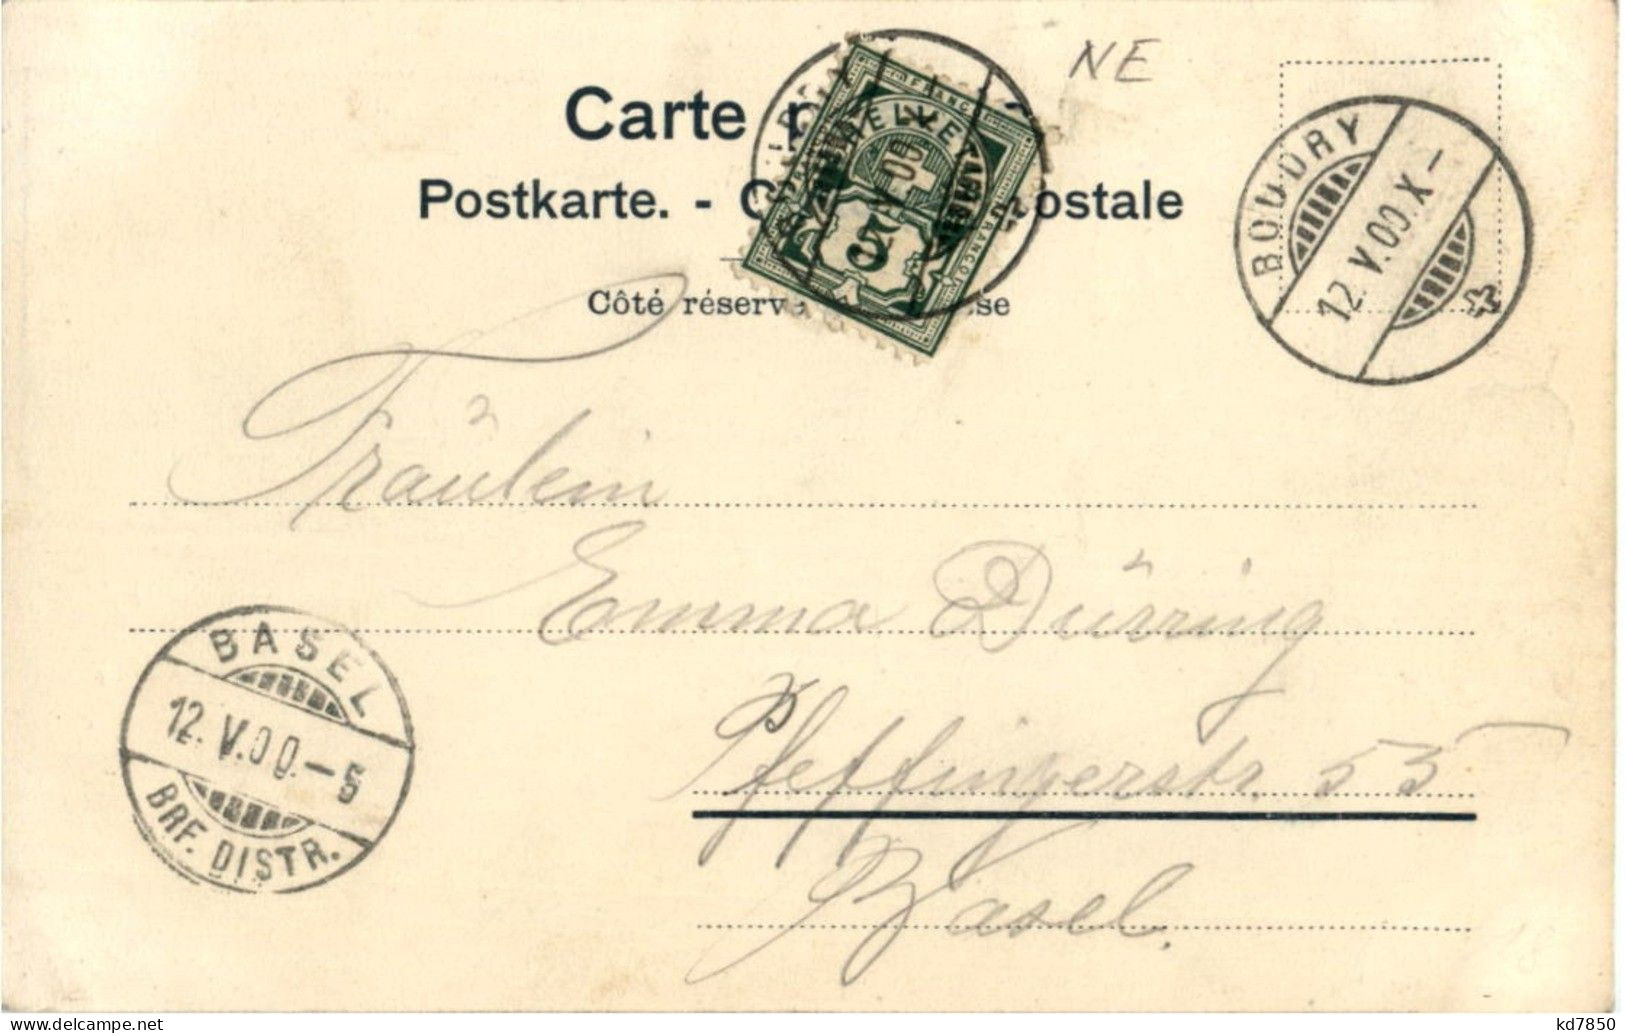 NE
Carte
Postkarte. - C ostale
Côté réserv se
FRANCO
HELVETIA
FRANCO
5
BOUDRY
12.V.00.X-
Fräulein
Emma Dürring
Pfeffingerstr. 55
Basel.
BASEL
12.V.00.-5
BRF. DISTR.
kd7850